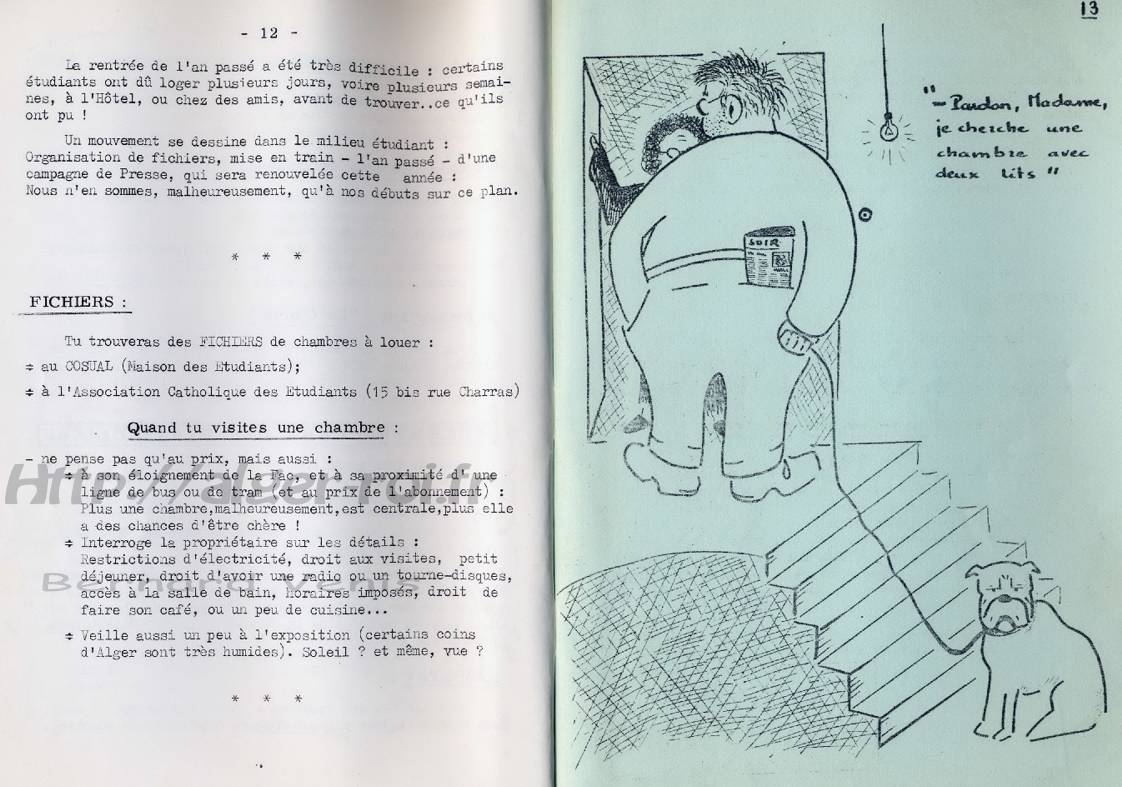 - 12 -
La rentrée de l'an passé a été très difficile : certains
étudiants ont dû loger plusieurs jours, voire plusieurs semai-
nes, à l'Hôtel, ou chez des amis, avant de trouver..ce qu'ils
ont pu !
Un mouvement se dessine dans le milieu étudiant :
Organisation de fichiers, mise en train - l'an passé - d'une
campagne de Presse, qui sera renouvelée cette année :
Nous n'en sommes, malheureusement, qu'à nos débuts sur ce plan.
* * *
FICHIERS :
Tu trouveras des FICHIERS de chambres à louer :
÷ au COSUAL (Maison des Etudiants);
÷ à l'Association Catholique des Etudiants (15 bis rue Charras)
Quand tu visites une chambre :
- ne pense pas qu'au prix, mais aussi :
÷ à son éloignement de la Fac, et à sa proximité d'une
ligne de bus ou de tram (et au prix de l'abonnement) :
Plus une chambre,malheureusement,est centrale,plus elle
a des chances d'être chère !
÷ Interroge la propriétaire sur les détails :
Restrictions d'électricité, droit aux visites, petit
déjeuner, droit d'avoir une radio ou un tourne-disques,
accès à la salle de bain, horaires imposés, droit de
faire son café, ou un peu de cuisine...
÷ Veille aussi un peu à l'exposition (certains coins
d'Alger sont très humides). Soleil ? et même, vue ?
* * *
Http://alger-roi.fr
Bernard Venis
13
"- Pardon, Madame,
je cherche une
chambre avec
deux lits "
SOIR